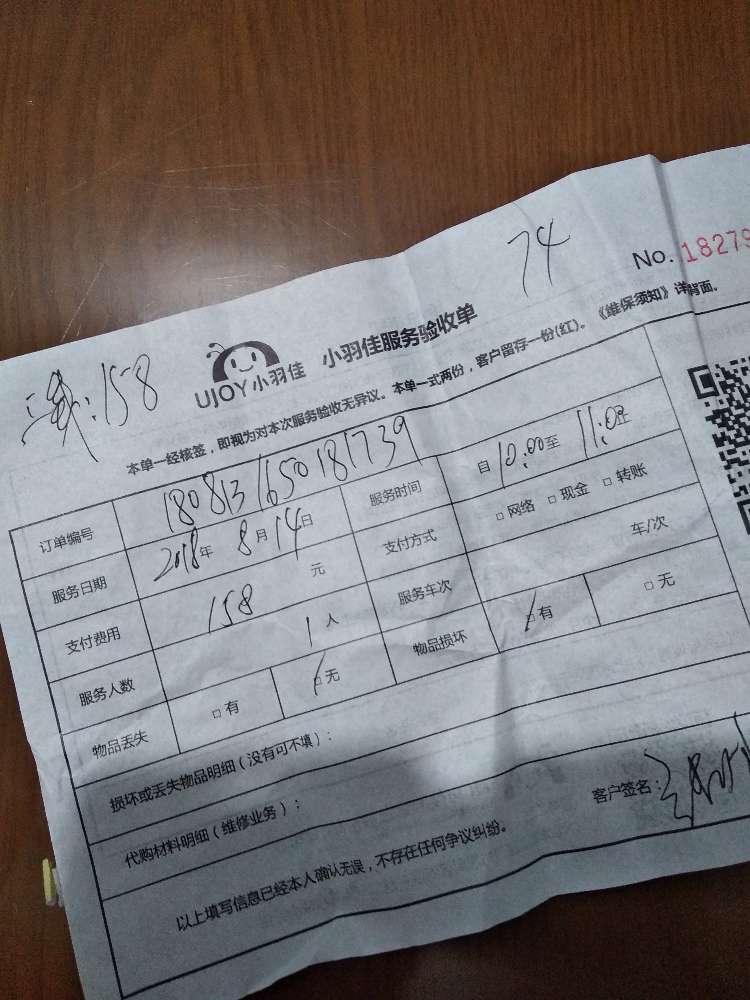 74
No. 18279
:158
UJOY小羽佳 小羽佳服务验收单
本单一经核签，即视为对本次服务验收无异议。本单一式两份，客户留存一份(红)。《维保须知》详背面。
订单编号 1808131650181739 服务时间 自10:00至11:02止
服务日期 2018年8月14日 支付方式 □网络 □现金 □转账
支付费用 158 元 服务车次 车/次
服务人数 1人 物品损坏 □有 □无
物品丢失 □有 □无
损坏或丢失物品明细（没有可不填）：
代购材料明细（维修业务）：
客户签名：
以上填写信息已经本人确认无误，不存在任何争议纠纷。